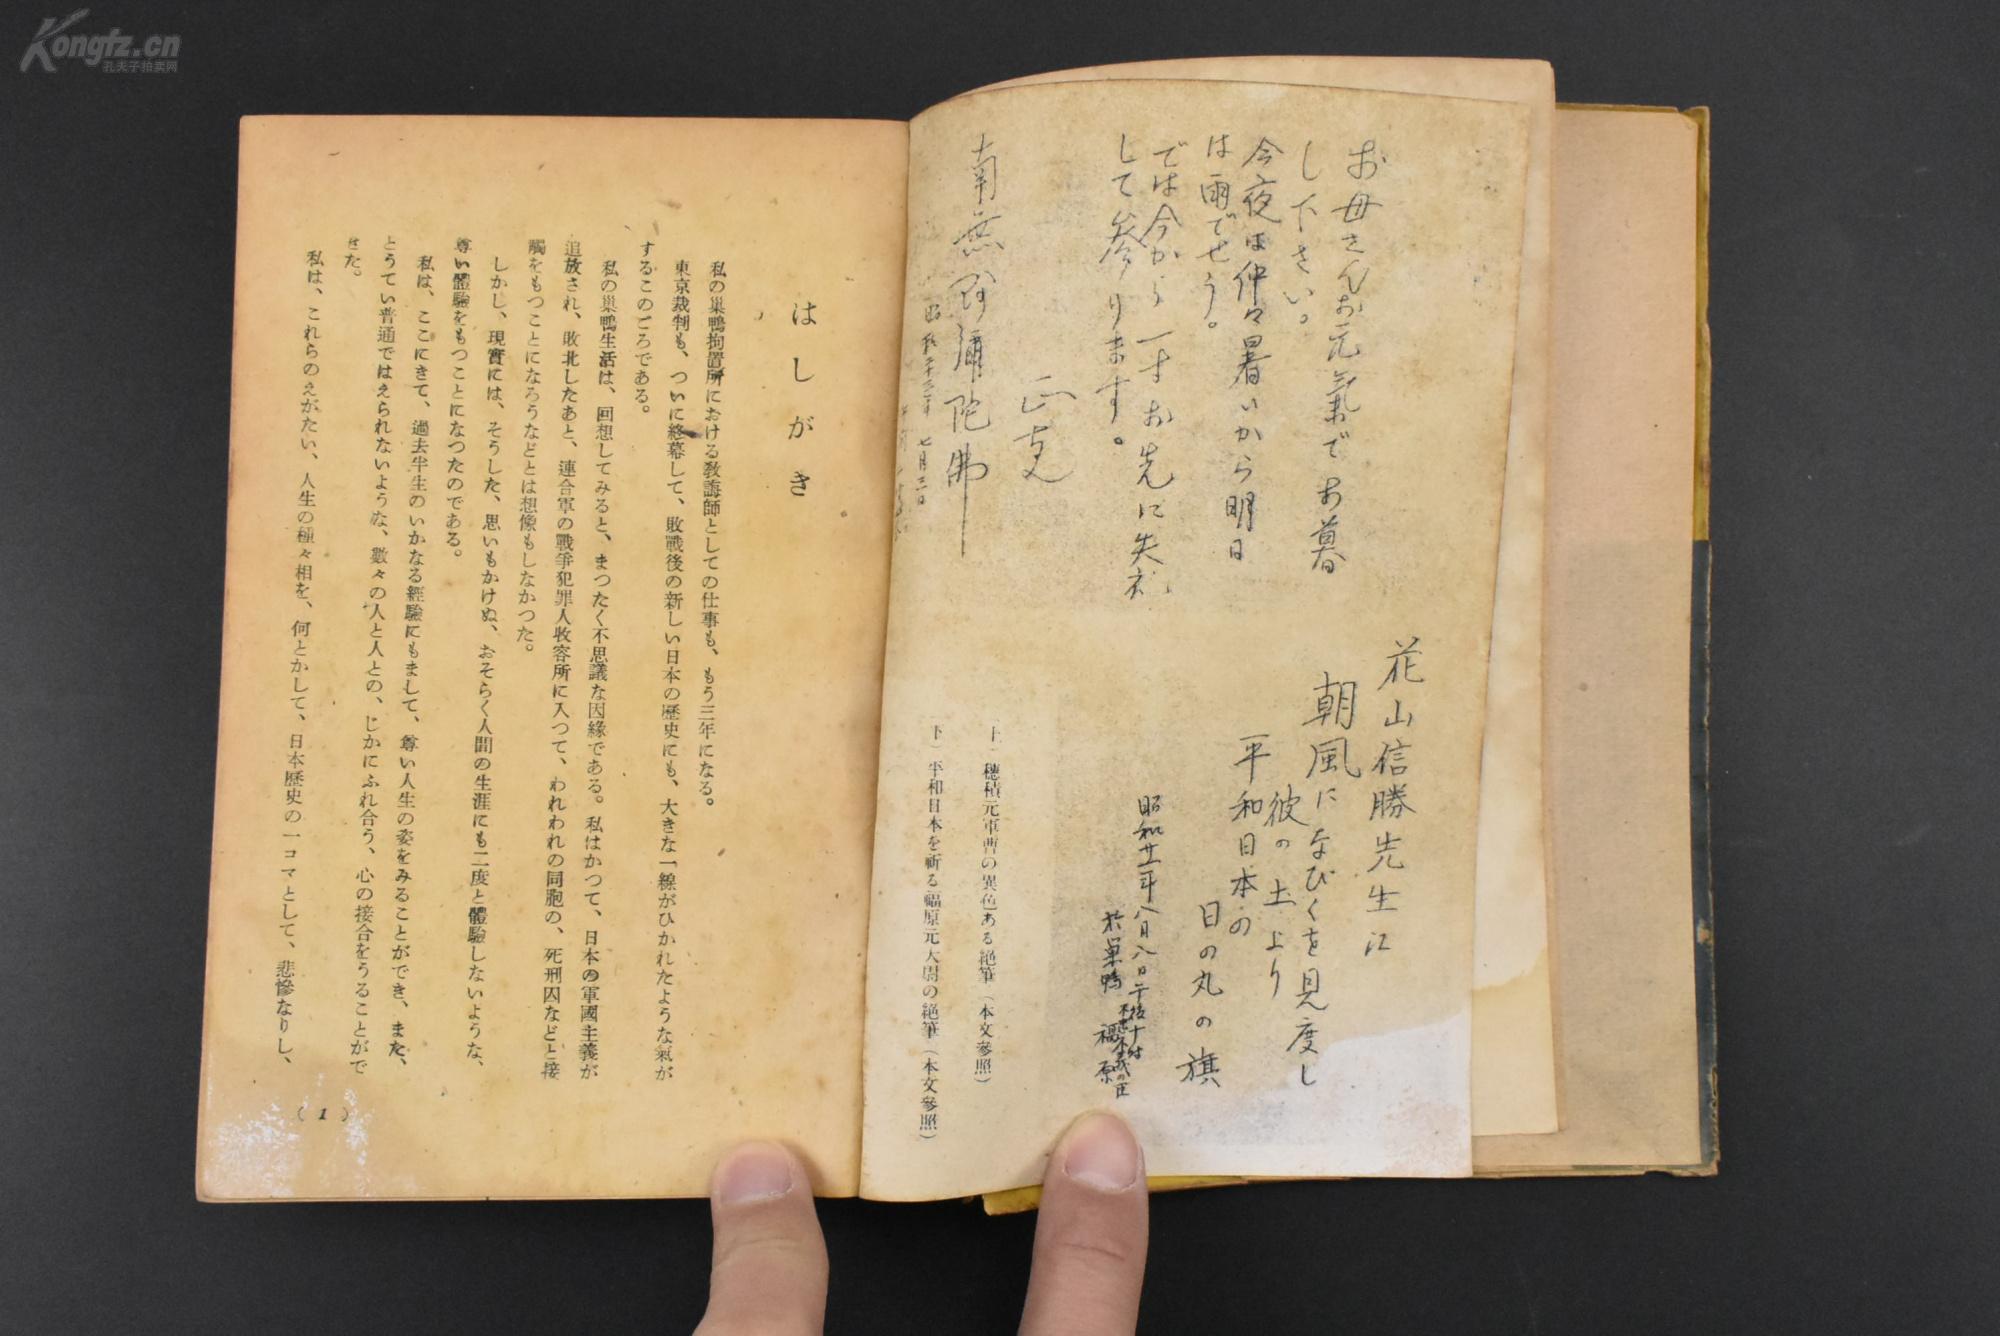 Kongfz.cn
孔夫子拍卖网
お母さんお元氣でお暮
し下さい。
今夜は仲々暑いから明日
は雨でせう。
では今から一寸お先に失礼
して參ります。
正克
南無阿彌陀佛
昭和二十三年七月三日
花山信勝先生に
朝風になびくを見度し
彼の土より
平和日本の
日の丸の旗
昭和廿一年八月八日午後十時
於巣鴨 福原
(上)穗積元軍曹の異色ある絕筆(本文參照)
(下)平和日本を祈る福原元大尉の絕筆(本文參照)
はしがき
私の巣鴨拘置所における敎誨師としての仕事も、もう三年になる。
東京裁判も、ついに終幕して、敗戰後の新しい日本の歷史にも、大きな一線がひかれたような氣が
するこのごろである。
私の巣鴨生活は、回想してみると、まつたく不思議な因緣である。私はかつて、日本の軍國主義が
追放され、敗北したあと、連合軍の戰爭犯罪人收容所に入つて、われわれの同胞の、死刑囚などと接
觸をもつことになろうなどとは想像もしなかつた。
しかし、現實には、そうした、思いもかけぬ、おそらく人間の生涯にも二度と體驗しないような、
尊い體驗をもつことになつたのである。
私は、ここにきて、過去半生のいかなる經驗にもまして、尊い人生の姿をみることができ、また、
とうてい普通ではえられないような、數々の人と人との、じかにふれ合う、心の接合をうることがで
きた。
私は、これらのえがたい、人生の種々相を、何とかして、日本歷史の一コマとして、悲慘なりし、
(1)